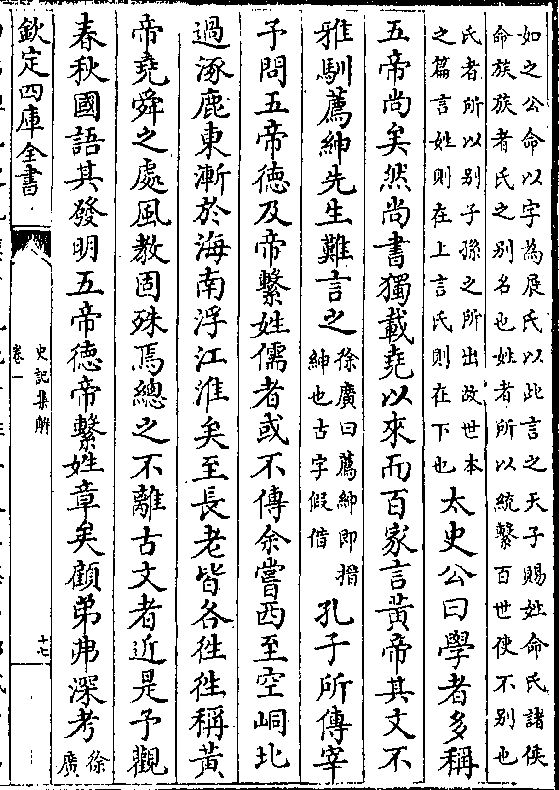 如之公命以字為展氏以此言之天子賜姓命氏諸侯
命族族者氏之别名也姓者所以統繫百世使不别也
氏者所以别子孫之所出故世本
之篇言姓則在上言氏則在下也
太史公曰學者多稱
五帝尚矣然尚書獨載堯以來而百家言黄帝其文不
雅馴薦紳先生難言之
徐廣曰薦紳即搢
紳也古字假借
孔子所傳宰
予問五帝德及帝繫姓儒者或不傳余嘗西至空峒北
過涿鹿東漸於海南浮江淮矣至長老皆各徃徃稱黄
帝堯舜之處風教固殊焉總之不離古文者近是予觀
春秋國語其發明五帝德帝繫姓章矣顧弟弗深考
徐
廣
欽定四庫全書
史記集解
卷一
十七